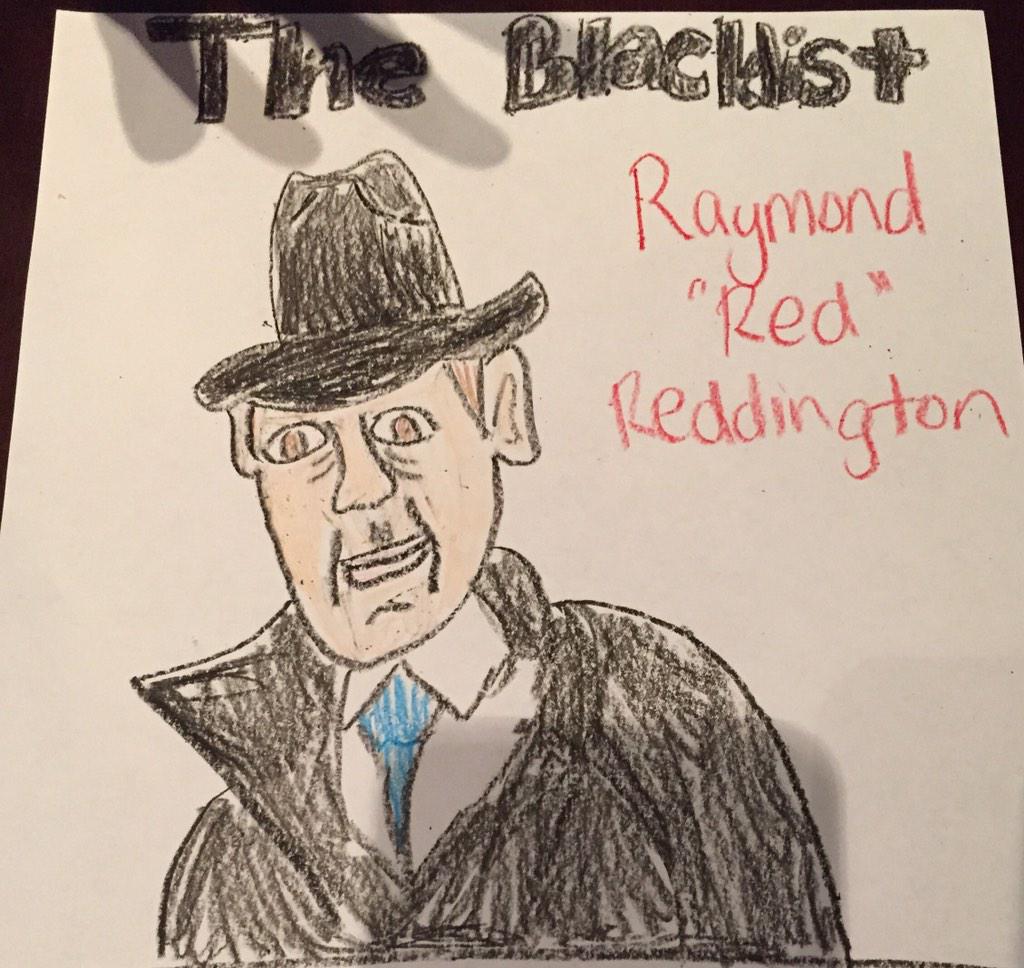 The Blacklist
Raymond
"Red"
Reddington